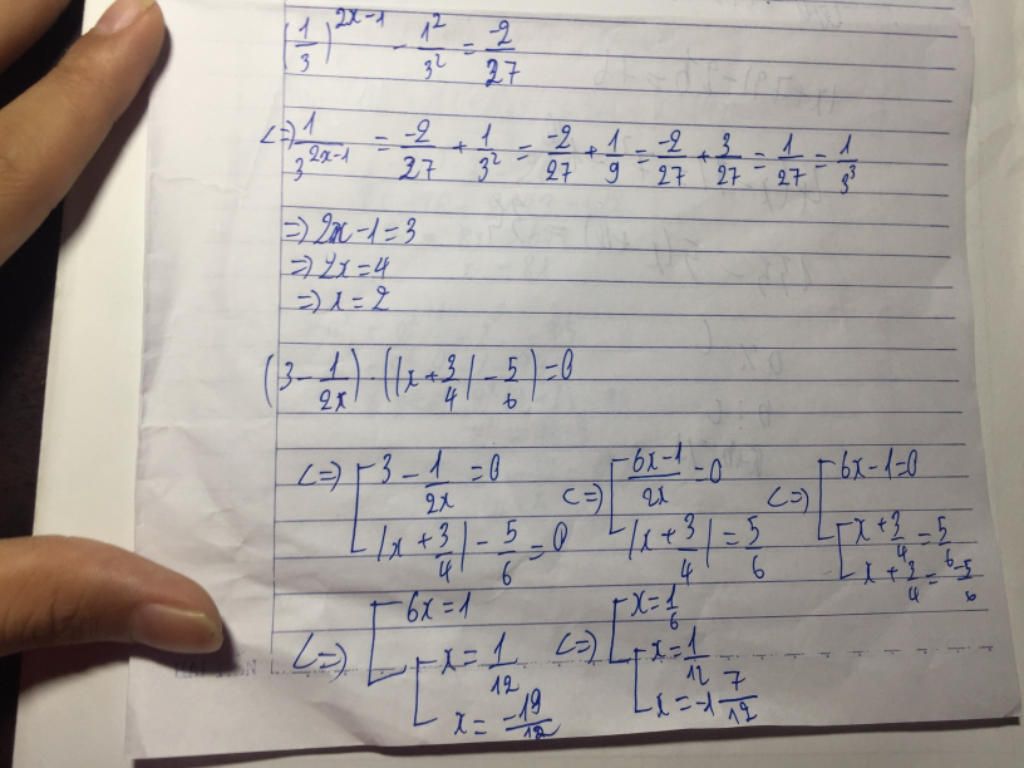 (1/3)^(2x-1) - 1²/3² = -2/27
<=> 1/3^(2x-1) = -2/27 + 1/3² = -2/27 + 1/9 = -2/27 + 3/27 = 1/27 = 1/3³
=> 2x-1=3
=> 2x=4
=> x=2
(3 - 1/2x) . (|x + 3/4| - 5/6) = 0
<=> [ 3 - 1/2x = 0 <=> [ (6x-1)/2x = 0 <=> [ 6x-1=0
|x + 3/4| - 5/6 = 0 |x + 3/4| = 5/6 [ x + 3/4 = 5/6
x + 3/4 = -5/6
<=> [ 6x=1 <=> [ x = 1/6
[ x = 1/12 [ x = 1/12
x = -19/12 x = -1 7/12